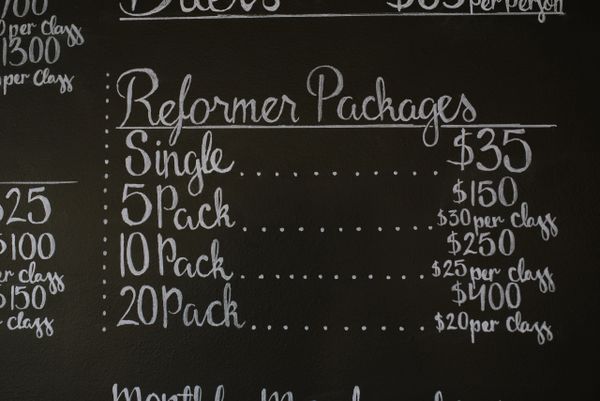 Duets $65 per person
00
per class
1300
per class
Reformer Packages
Single $35
5 Pack $150
$30 per class
10 Pack $250
$25 per class
20 Pack $400
$20 per class
$25
$100
per class
$150
per class